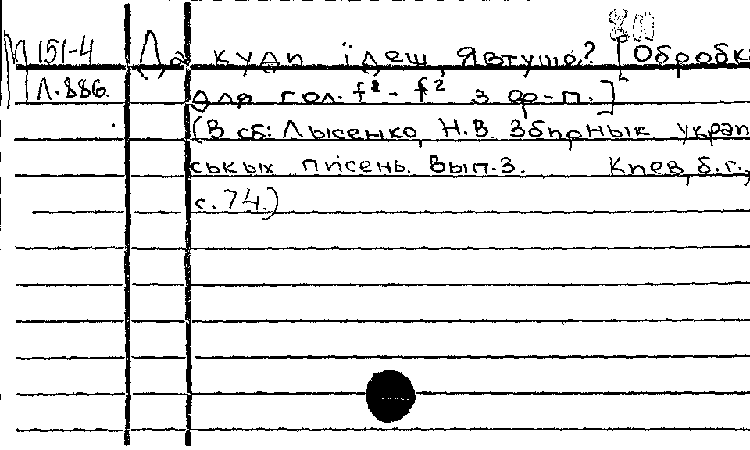 80
М 151-4 Да куди їдеш, Явтуше? [Обробка
Л.886. для гол. f¹ - f² з ф-п.]
(В сб: Лысенко, Н.В. Збирнык украп
ськых писень. Вып.3. Киев, б.г.,
с.74.)